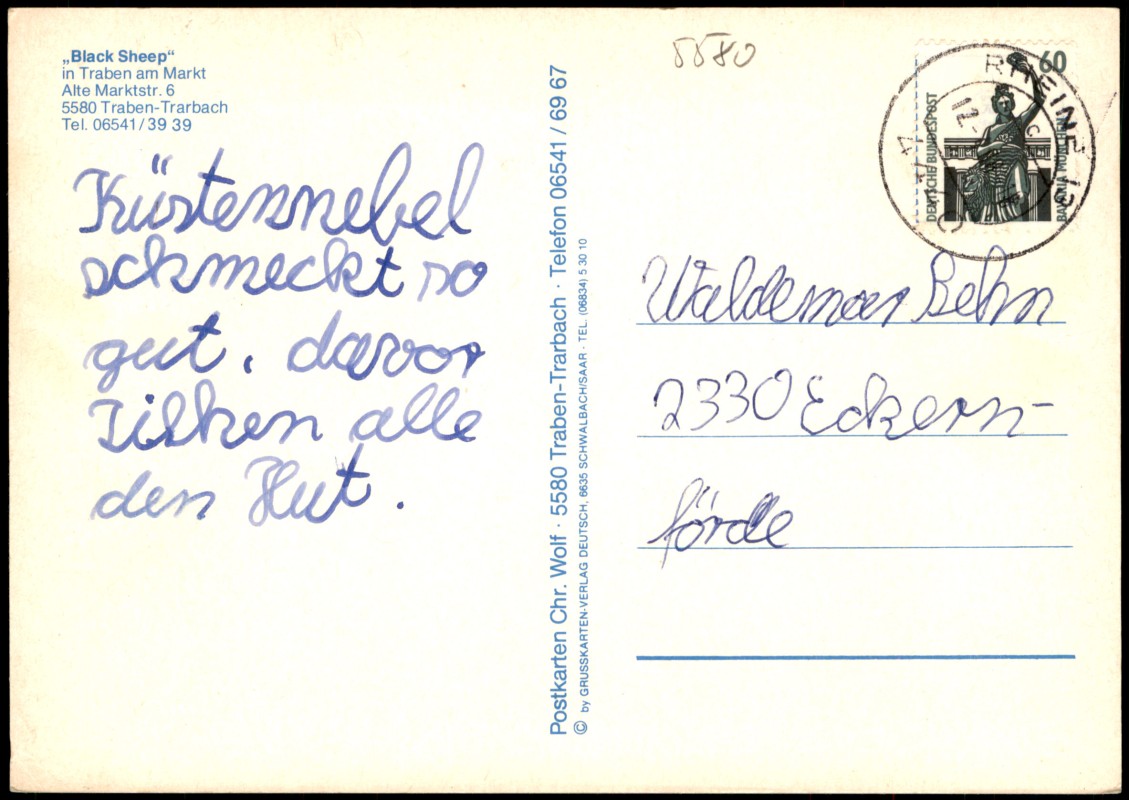 „Black Sheep“
in Traben am Markt
Alte Marktstr. 6
5580 Traben-Trarbach
Tel. 06541/39 39
Küstennebel
schmeckt so
gut, davor
Ziehen alle
den Hut.
Postkarten Chr. Wolf · 5580 Traben-Trarbach · Telefon 06541 / 69 67
© by GRUSSKARTEN-VERLAG DEUTSCH, 6635 SCHWALBACH/SAAR · TEL. (06834) 5 30 10
5580
60
DEUTSCHE BUNDESPOST
BAVARIA MÜNCHEN
RHEINE
Waldemar Behn
2330 Eckern-
förde